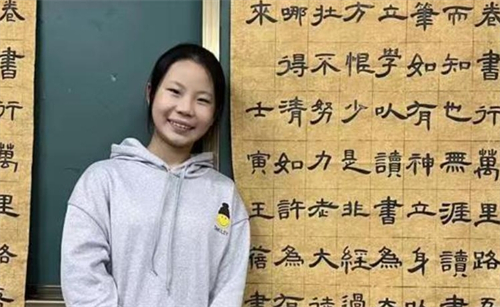 卷書行萬里路
而知也無涯讀
筆如有神立身
立學以讀書為本
方恨少是非經過
壯不努力老大徒
哪得清如許為有
來 壬寅王蓓書
卷書行萬里路